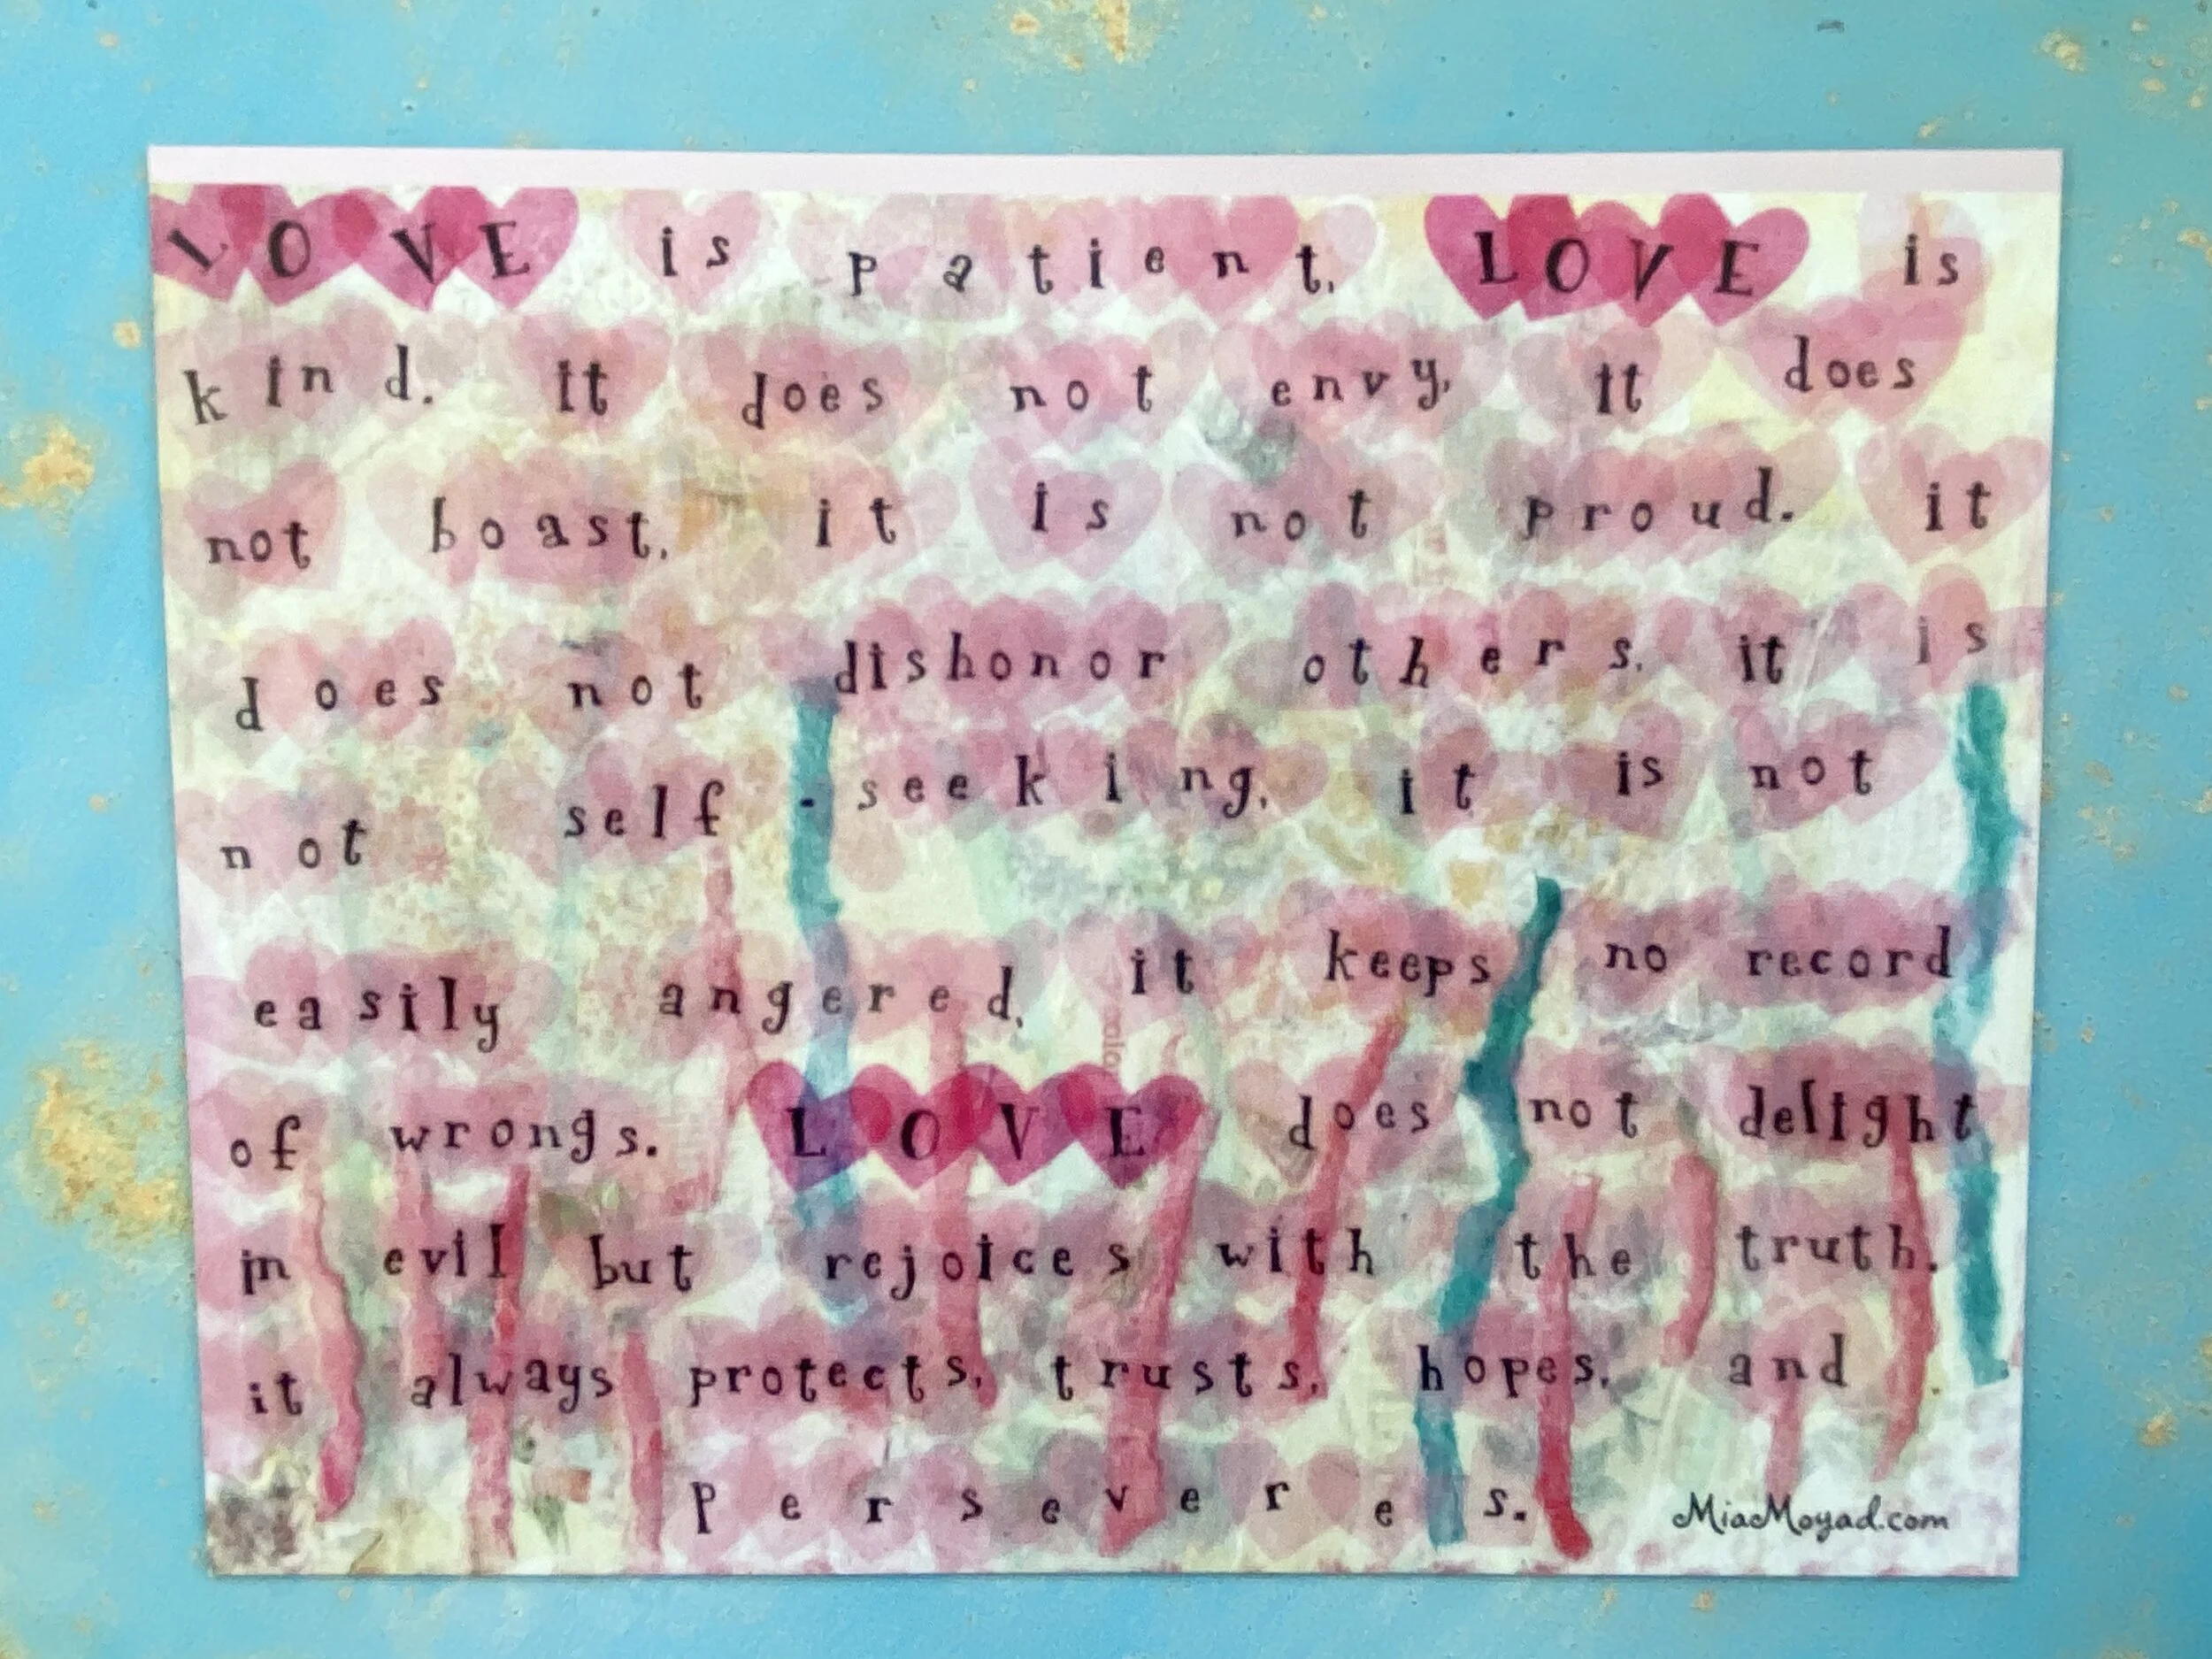 LOVE is patient, LOVE is
kind. it does not envy, it does
not boast, it is not proud. it
does not dishonor others, it is
not self-seeking, it is not
easily angered, it keeps no record
of wrongs. LOVE does not delight
in evil but rejoices with the truth.
it always protects, trusts, hopes, and
perseveres.
MiaMoyad.com